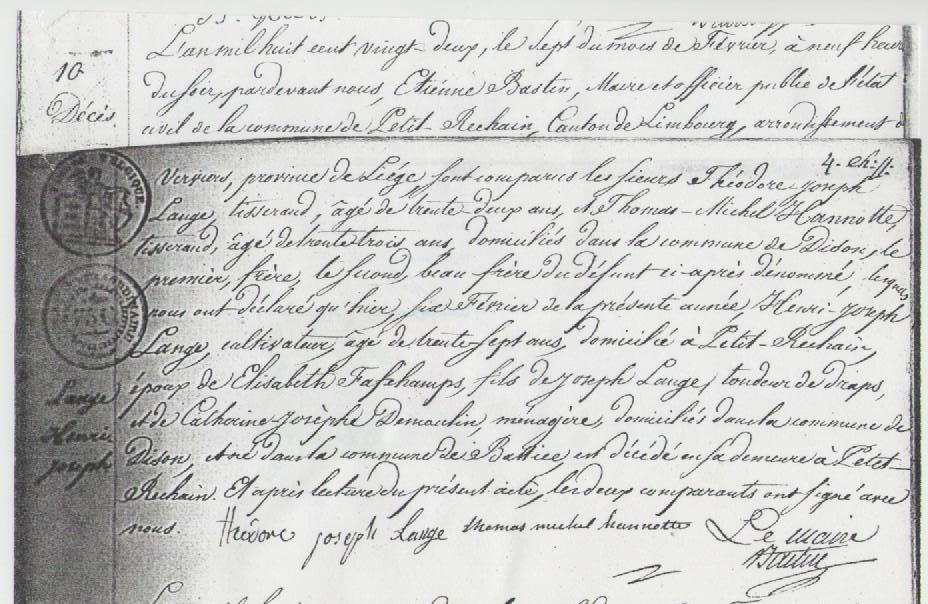 L'an mil huit cent vingt-deux, le sept du mois de Février, à neuf heur
10
du soir, pardevant nous, Etienne Bastin, Maire et officier public de l'état
Décès
civil de la commune de Petit-Rechain, Canton de Limbourg, arrondissement d
4.
Verviers, province de Liége sont comparus les sieurs Théodore Joseph
Lange, tisserand, âgé de trente deux ans, et Thomas-Michel Hannotte,
tisserand, âgé de trente trois ans, domiciliés dans la commune de Dison, le
premier, frère, le second, beau-frère du défunt ci-après dénommé, lesquels
nous ont déclaré qu'hier, six Février de la présente année, Henri-Joseph
Lange, cultivateur, âgé de trente-sept ans, domicilié à Petit-Rechain,
époux de Elisabeth Fafchamps, fils de Joseph Lange, tondeur de draps,
Lange
et de Catherine-Josèphe Demoulin, ménagère, domiciliés dans la commune de
Henri
Dison, et né dans la commune de Battice est décédé en sa demeure à Petit-
Joseph
Rechain. Et après lecture du présent acte, les deux comparants ont signé avec
nous.
théodore joseph Lange thomas michel hannotte Le Maire
Bastin